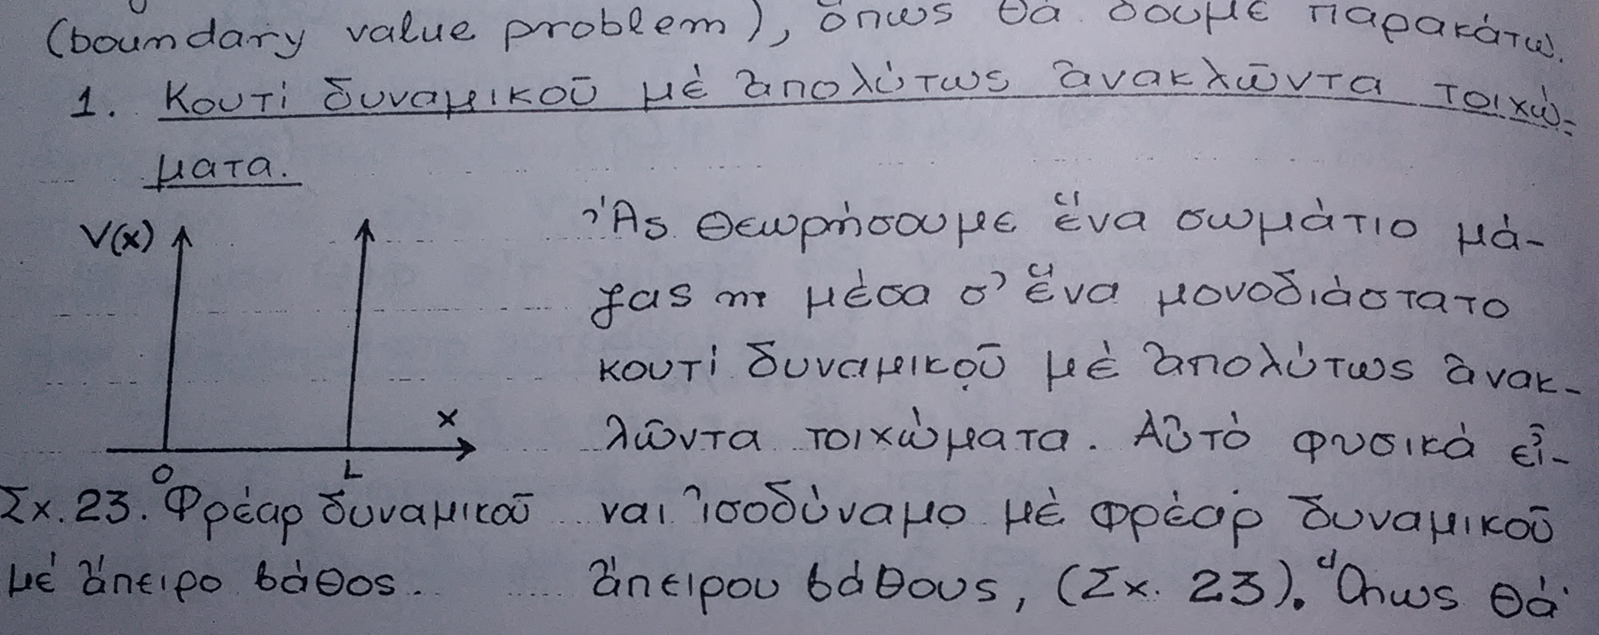 (boundary value problem), ὅπως θά δοῦμε παρακάτω.
1. Κουτί δυναμικοῦ μέ ἀπολύτως ἀνακλῶντα τοιχώ-
ματα.
V(x)
x
0 L
Σχ. 23. Φρέαρ δυναμικοῦ
μέ ἄπειρο βάθος.
Ἄς θεωρήσουμε ἕνα σωμάτιο μά-
ζας m μέσα σ' ἕνα μονοδιάστατο
κουτί δυναμικοῦ μέ ἀπολύτως ἀνακ-
λῶντα τοιχώματα. Αὐτό φυσικά εἶ-
ναι ἰσοδύναμο μέ φρέαρ δυναμικοῦ
ἄπειρου βάθους, (Σχ. 23). Ὅπως θά